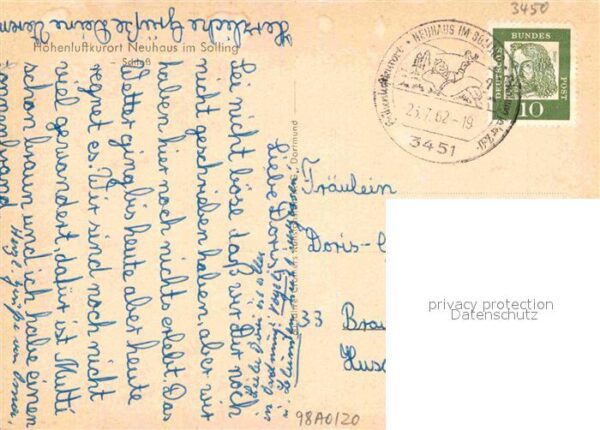 3450
Höhenluftkurort Neuhaus im Solling
- Schloß -
Herzliche Grüße Deine Karen
NEUHAUS IM SOLLING
Höhenluftkurort
25.7.62-19
3451
DEUTSCHE BUNDESPOST
10
Liebe Doris!
Sei nicht böse, daß wir Dir noch
nicht geschrieben haben, aber wir
haben hier noch nichts erlebt. Das
Wetter ging bis heute, aber heute
regnet es. Wir sind noch nicht
viel gewandert, dafür ist Mutti
schon braun und ich habe einen
Sonnenbrand.
Herzl. Grüße von
Dortmund
Fräulein
Doris-
33 Brau
Husa
privacy protection
Datenschutz
98A0120